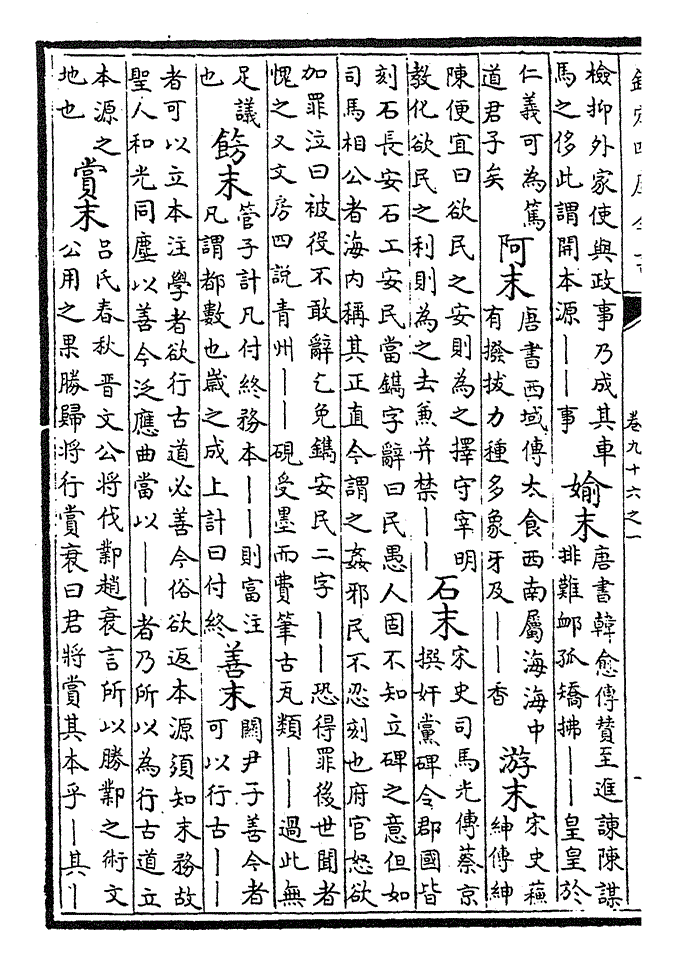 欽定四庫全書
卷九十六之一
檢抑外家使與政事乃成其車
馬之侈此謂開本源——事
媮末
唐書韓愈傳贊至進諫陳謀
排難卹孤矯拂——皇皇於
仁義可為篤
道君子矣
阿末
唐書西域傳太食西南屬海海中
有撥拔力種多象牙及——香
游末
宋史蘓
紳傳紳
陳便宜曰欲民之安則為之擇守宰明
教化欲民之利則為之去兼并禁——
石末
宋史司馬光傳蔡京
撰奸黨碑令郡國皆
刻石長安石工安民當鐫字辭曰民愚人固不知立碑之意但如
司馬相公者海内稱其正直今謂之姦邪民不忍刻也府官怒欲
加罪泣曰被役不敢辭乞免鐫安民二字——恐得罪後世聞者
愧之又文房四説青州——硯受墨而費筆古瓦類——過此無
足議
也
餝末
管子計凡付終務本——則富注
凡謂都數也嵗之成上計曰付終
善末
關尹子善今者
可以行古——
者可以立本注學者欲行古道必善今俗欲返本源須知末務故
聖人和光同塵以善今泛應曲當以——者乃所以為行古道立
本源之
地也
賞末
呂氏春秋晉文公將伐鄴趙衰言所以勝鄴之術文
公用之果勝歸將行賞衰曰君將賞其本乎—其—